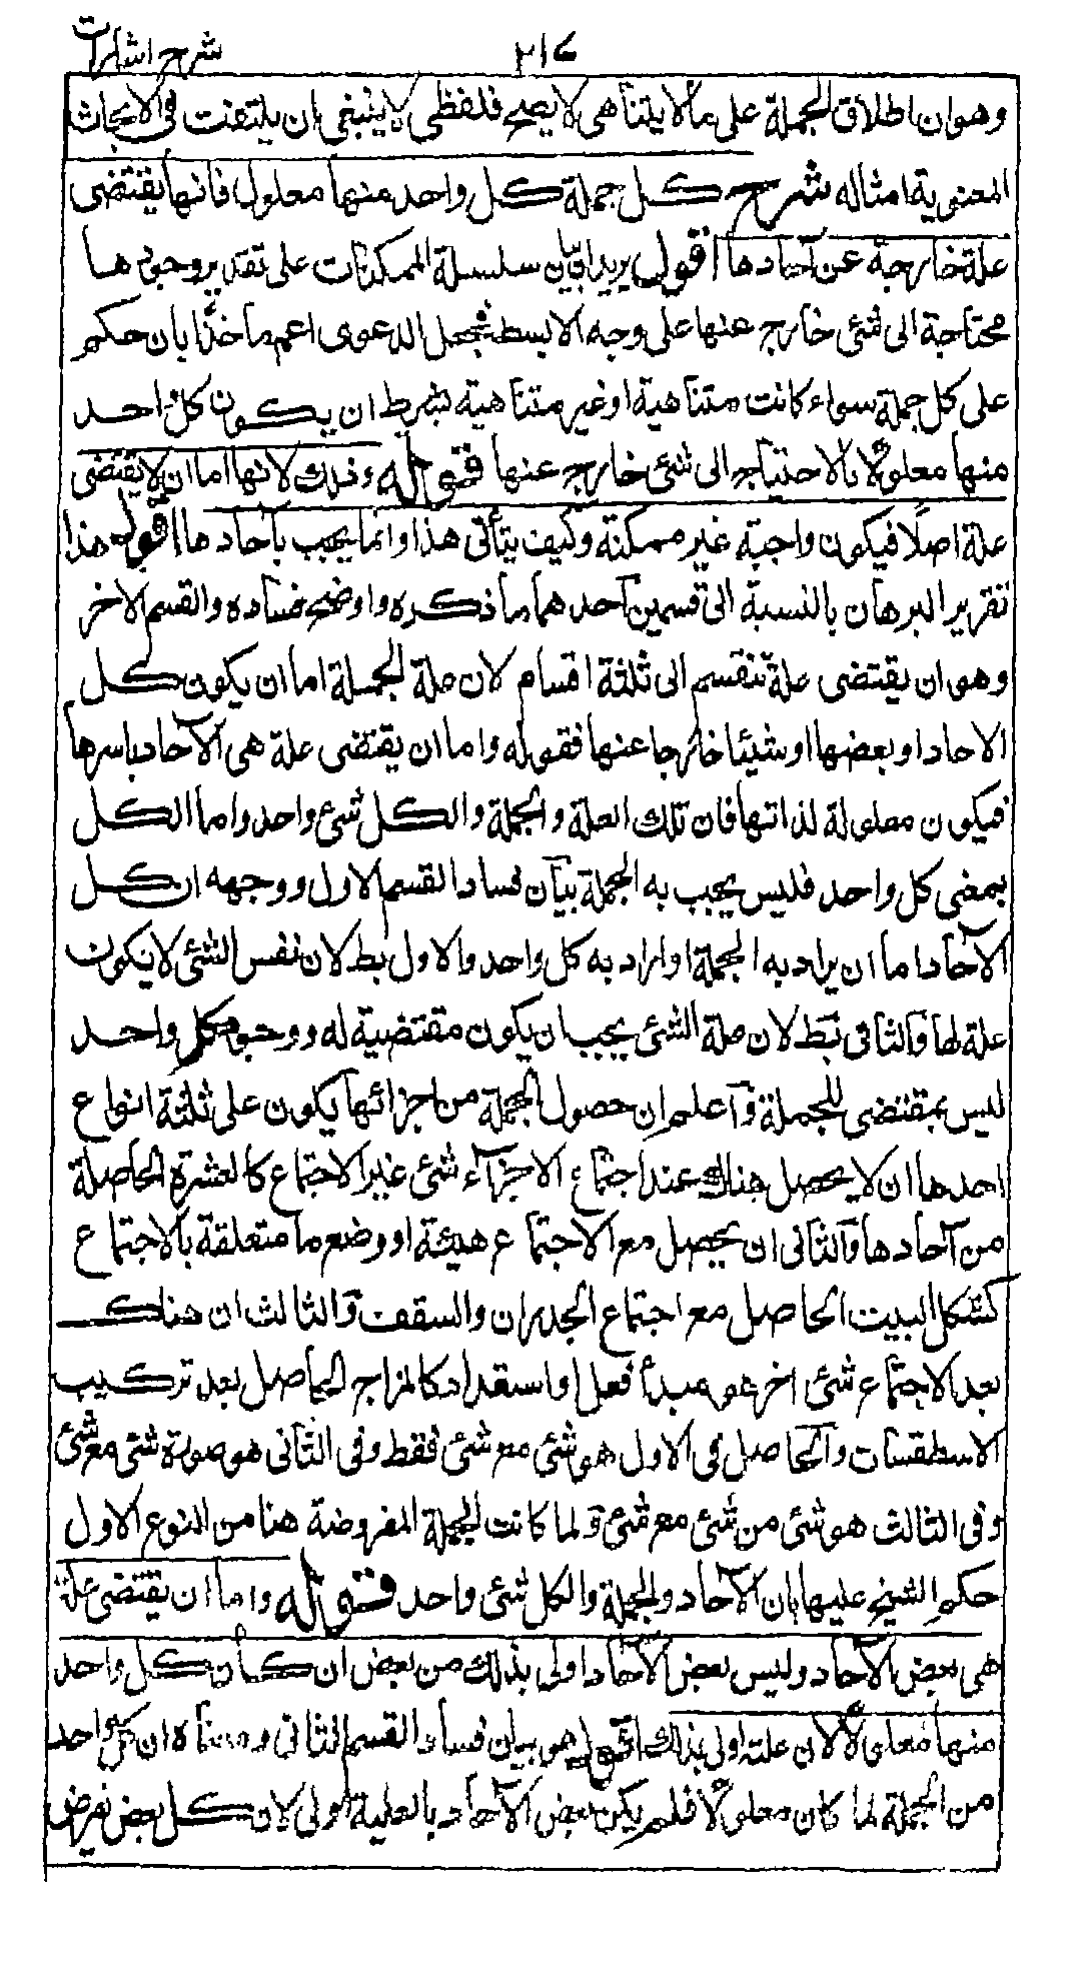 شرح اشارات
٢١٤
وهو ان اطلاق الجملة على ما لا يتناهى لا يصح فلفظى لا ينبغى ان يلتفت فى الابحاث
المعنوية امثاله شرح كل جملة كل واحد منها معلول فانها يقتضى
علة خارجة عن آحادها اقول يريد ان يبين سلسلة الممكنات على تقدير وجودها
محتاجة الى شئ خارج عنها على وجه الابسط فجعل الدعوى اعم ماخذا بان حكم
على كل جملة سواء كانت متناهية او غير متناهية بشرط ان يكون كل واحد
منها معلولا بالاحتياج الى شئ خارج عنها قوله وذلك لانها اما ان لا يقتضى
علة اصلا فيكون واجبة غير ممكنة وكيف يتأتى هذا وانما يجب بآحادها اقول هذا
تقرير البرهان بالنسبة الى قسمين احدهما ما ذكره واوضح فساده والقسم الاخر
وهو ان يقتضى علة تنقسم الى ثلثة اقسام لان علة الجملة اما ان يكون كل
الاحاد او بعضها او شيئا خارجا عنها فقوله واما ان يقتضى علة هى الآحاد باسرها
فيكون معلولة لذاتها فان تلك العلة والجملة والكل شئ واحد واما الكل
بمعنى كل واحد فليس يجب به الجملة بيان فساد القسم الاول ووجهه ان كل
الآحاد اما ان يراد به الجملة او اراد به كل واحد والاول بط لان نفس الشئ لا يكون
علة لها والثانى بط لان علة الشئ يجب ان يكون مقتضية له ووجود كل واحد
ليس بمقتضى للجملة وآعلم ان حصول الجملة من اجزائها يكون على ثلثة انواع
احدها ان لا يحصل هناك عند اجتماع الاجزآء شئ غير الاجتماع كالعشرة الحاصلة
من آحادها والثانى ان يحصل مع الاجتماع هيئة او وضع ما متعلقة بالاجتماع
كشكل البيت الحاصل مع اجتماع الجدران والسقف والثالث ان هناك
بعد الاجتماع شئ اخر هو مبدأ فعل او استعداد كالمزاج الحاصل بعد تركيب
الاسطقسات والحاصل فى الاول هو شئ مع شئ فقط وفى الثانى هو صورة شئ مع شئ
وفى الثالث هو شئ من شئ مع شئ ولما كانت الجملة المفروضة هنا من النوع الاول
حكم الشيخ عليها بان الآحاد والجملة والكل شئ واحد قوله واما ان يقتضى علة
هى بعض الآحاد وليس بعض الآحاد اولى بذلك من بعض ان كان كل واحد
منها معلولا لان علته اولى بذلك اقول هو بيان فساد القسم الثانى ومعناه ان كل واحد
من الجملة لما كان معلولا فلم يكن بعض الآحاد بالعلية اولى لان كل بعض يفرض